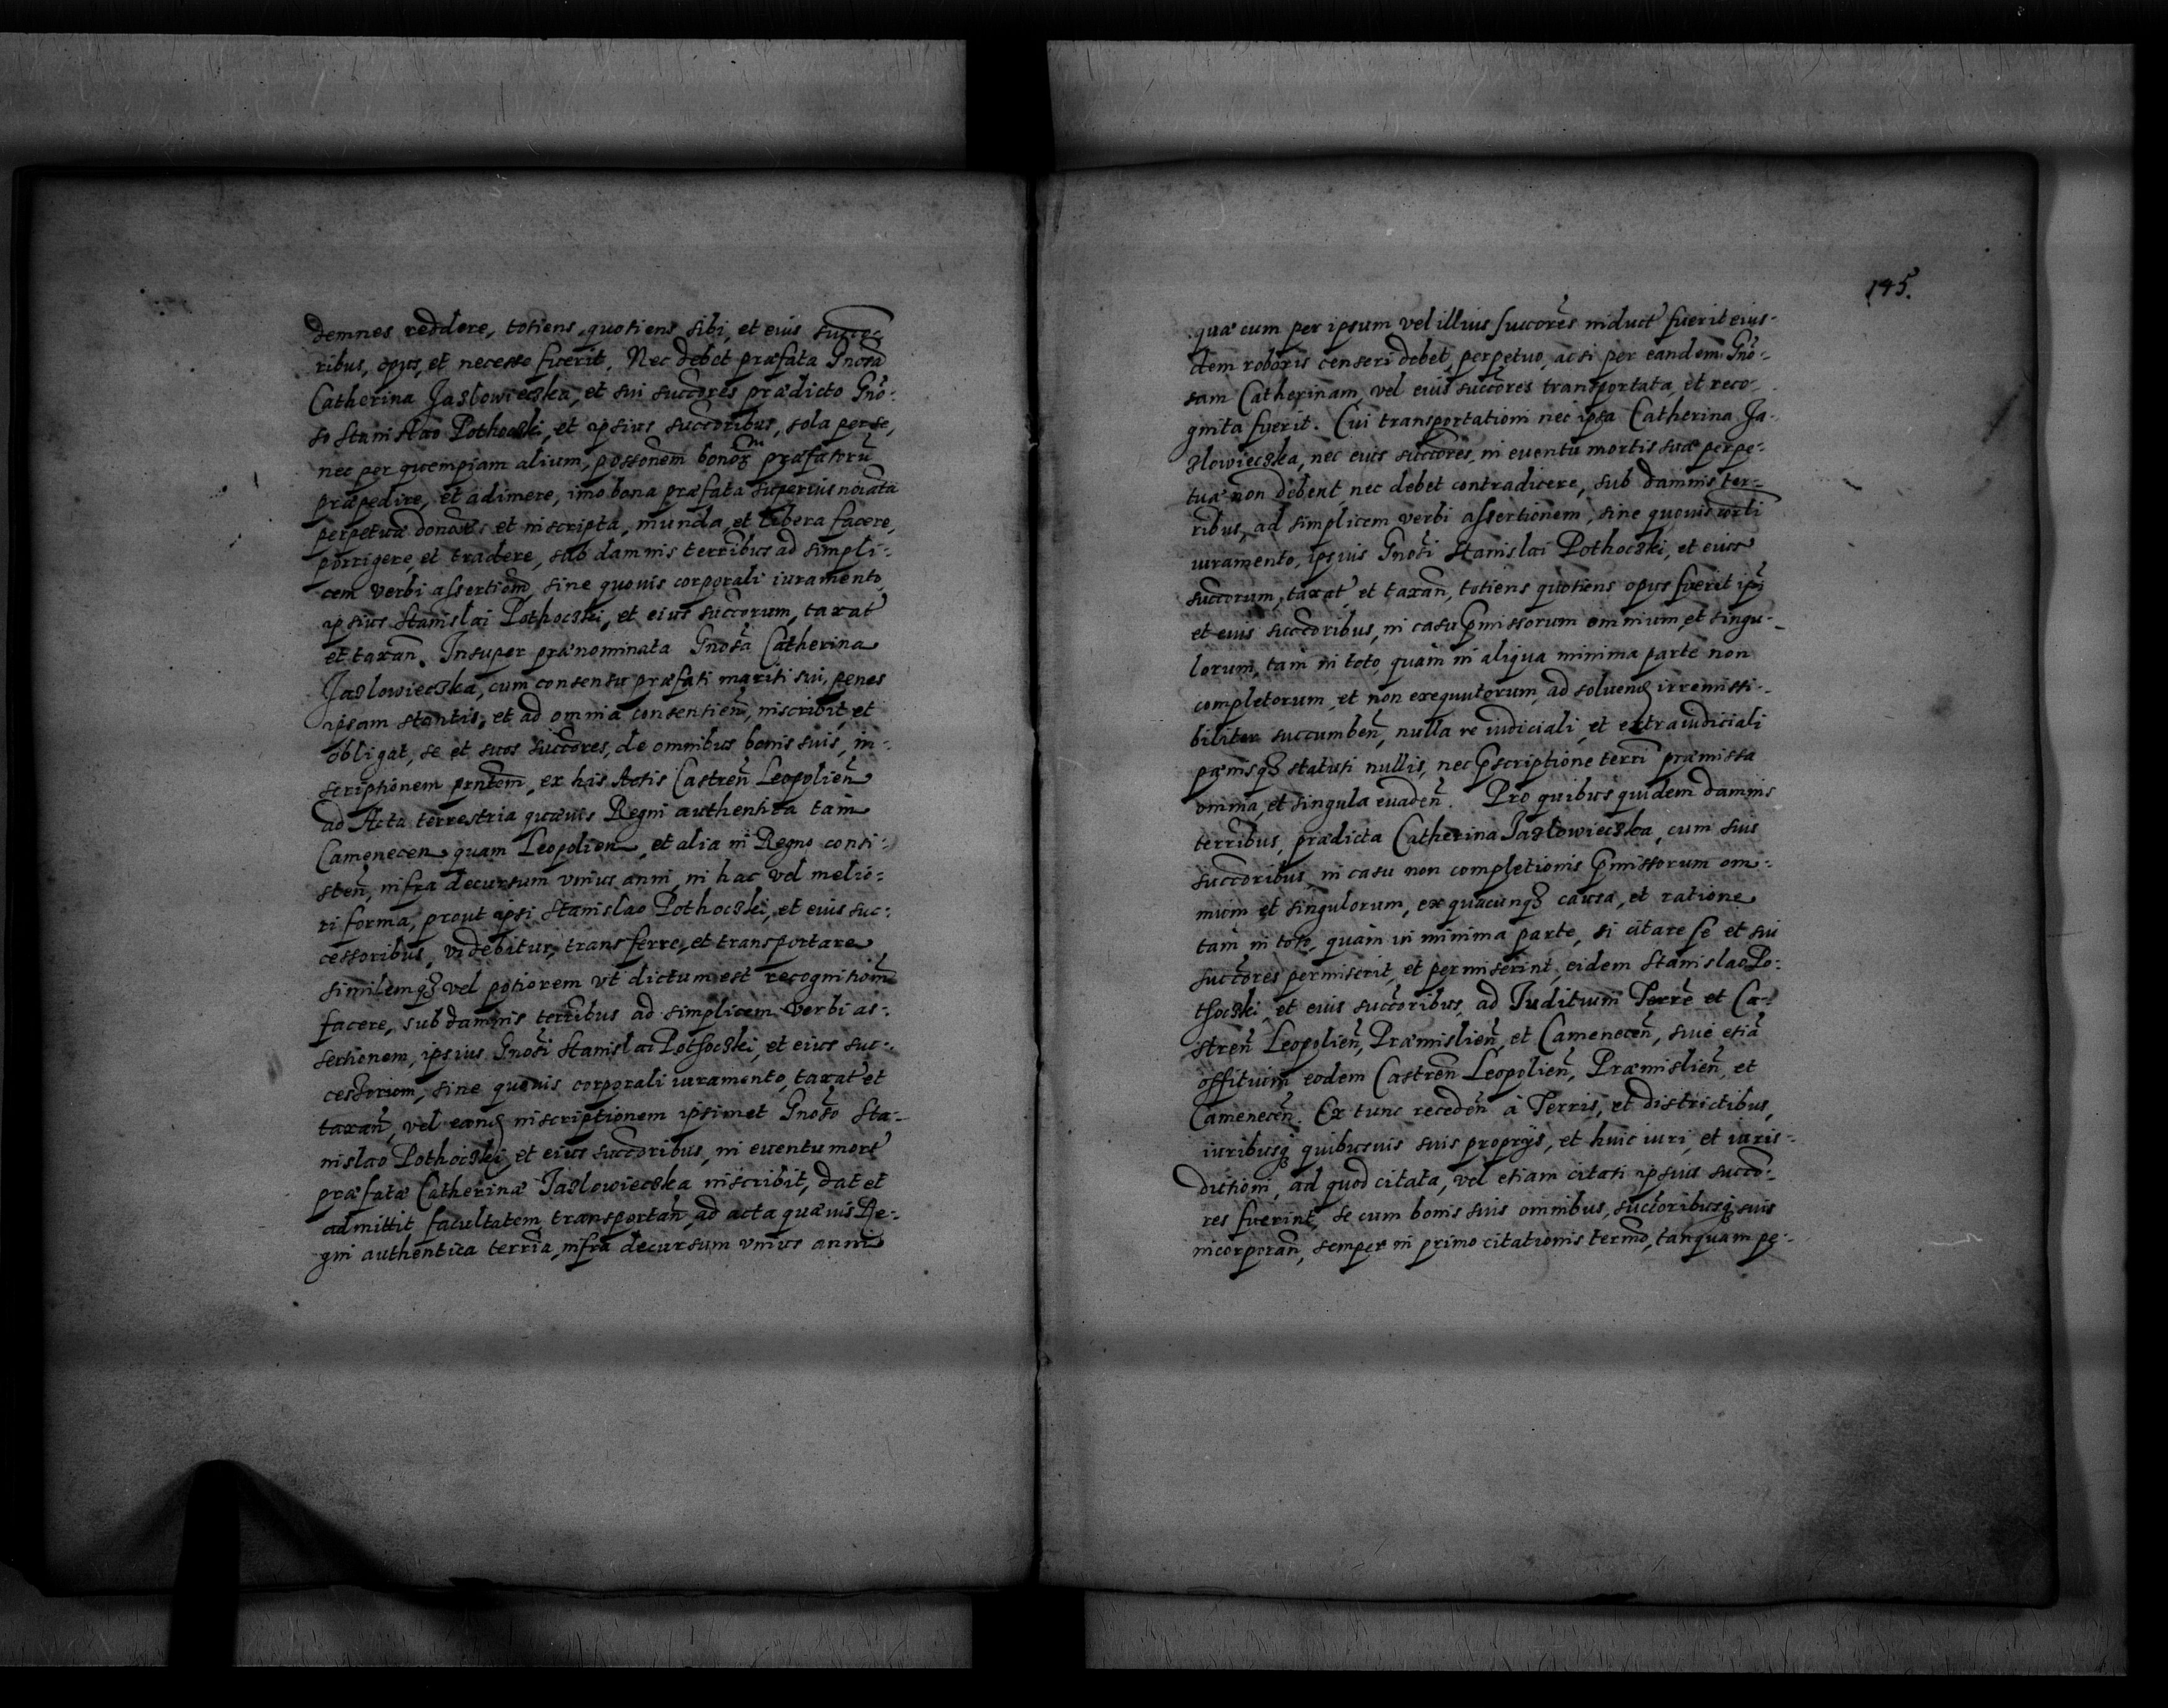 demnes reddere, totiens, quotiens sibi, et eius succes
ribus, opus, et necesse fuerit. Nec debet præfata Gnosa
Catherina Jaslowieczka, et sui succores prædicto Gno-
so Stanislao Pothoczki, et ipsius succoribus, sola per se,
nec per quempiam alium, possonem bonor præfatoru
præpedire, et adimere, imo bona præfata superius noiata
perpetuæ et inscripta, munda, et libera facere,
porrigere, et tradere, sub damnis terribus ad simpli-
cem verbi assertionem, sine quouis corporali iuramento,
ipsius Stanislai Pothoczki, et eius succorum, taxat
et taxan. Insuper prænominata Gnosa Catherina
Jaslowieczka, cum consensu præfati mariti sui, penes
ipsam stantis, et ad omnia consentien, inscribit, et
obligat, se et suos succores, de omnibus bonis suis, in-
scriptionem prntem, ex his Actis Castren Leopolien
ad Acta terrestria quæuis Regni authentica tam
Camenecen quam Leopolien, et alia in Regno consi-
sten, infra decursum vnius anni, in hac vel melio-
ri forma, prout ipsi Stanislao Pothoczki, et eius suc-
cessoribus, videbitur, transferre, et transportare
similemq3 vel potiorem vt dictum est recognitiom
facere, sub damnis terribus ad simplicem verbi as-
sertionem, ipsius Gnosi Stanislai Pothoczki, et eius suc-
cessorum, sine quouis corporali iuramento, taxat et
taxan, vel eand inscriptionem ipsimet Gnoso Sta-
nislao Pothoczki, et eius succoribus, in euentu mort
præfatæ Catherinæ Jaslowieczka inscribit, dat et
admittit facultatem transportan, ad acta quæuis Re-
gni authentica terria, infra decursum vnius anni
145.
quæ cum per ipsum vel illius succores induct fuerit eius-
dem roboris censeri debet, perpetuo, ac si per eandem Gno-
sam Catherinam, vel eius succores transportata, et reco-
gnita fuerit. Cui transportationi nec ipsa Catherina Ja-
slowieczka, nec eius succores, in euentu mortis suæ perpe-
tuæ non debent, nec debet contradicere, sub damnis ter-
ribus, ad simplicem verbi assertionem, sine quouis corli
iuramento, ipsius Gnosi Stanislai Pothoczki, et eius
succorum, taxat et taxan, totiens quotiens opus fuerit ipi
et eius succoribus, in casu pmissorum omnium, et singu-
lorum, tam in toto, quam in aliqua minima parte non
completorum, et non exequutorum, ad soluend irremissi-
biliter succumben, nulla re iudiciali, et extraiudiciali
pænisq3 statuti nullis, nec pscriptione terri præmissa
omnia, et singula euaden. Pro quibus quidem damnis
terribus, prædicta Catherina Jaslowieczka, cum suis
succoribus, in casu non completionis pmissorum om-
nium et singulorum, ex quacunq3 causa, et ratione
tam in toto, quam in minima parte, si citare se et sui
succores permiserit, et permiserint, eidem Stanislao Po-
thoczki, et eius succoribus, ad Juditium Terre et Ca-
stren Leopolien, Præmislien, et Camenecen, siue etia
offitium eodem Castren Leopolien, Præmislien, et
Camenecen. Ex tunc receden à Terris, et districtibus,
iuribusq quibusuis suis proprijs, et huic iuri, et iuris-
dictioni, ad quod citata, vel etiam citati ipsius succo-
res fuerint, se cum bonis suis omnibus, succoribusq suis
incorporan, semper in primo citationis termo, tanquam pe-